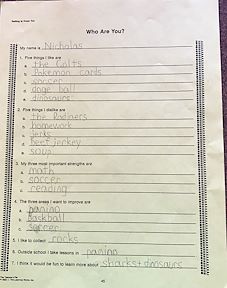 Who Are You?
My name is Nicholas
1. Five things I like are
a. the Colts
b. Pokemon cards
c. soccer
d. doge ball
e. dinosaurs
2. Five things I dislike are
a. the Raiders
b. homework
c. jerks
d. beef jerkey
e. soup
3. My three most important strengths are
a. math
b. soccer
c. reading
4. The three areas I want to improve are
a. panino
b. Backball
c. soccer
5. I like to collect rocks
6. Outside school I take lessons in panino
7. I think it would be fun to learn more about sharks + dinosaurs
45